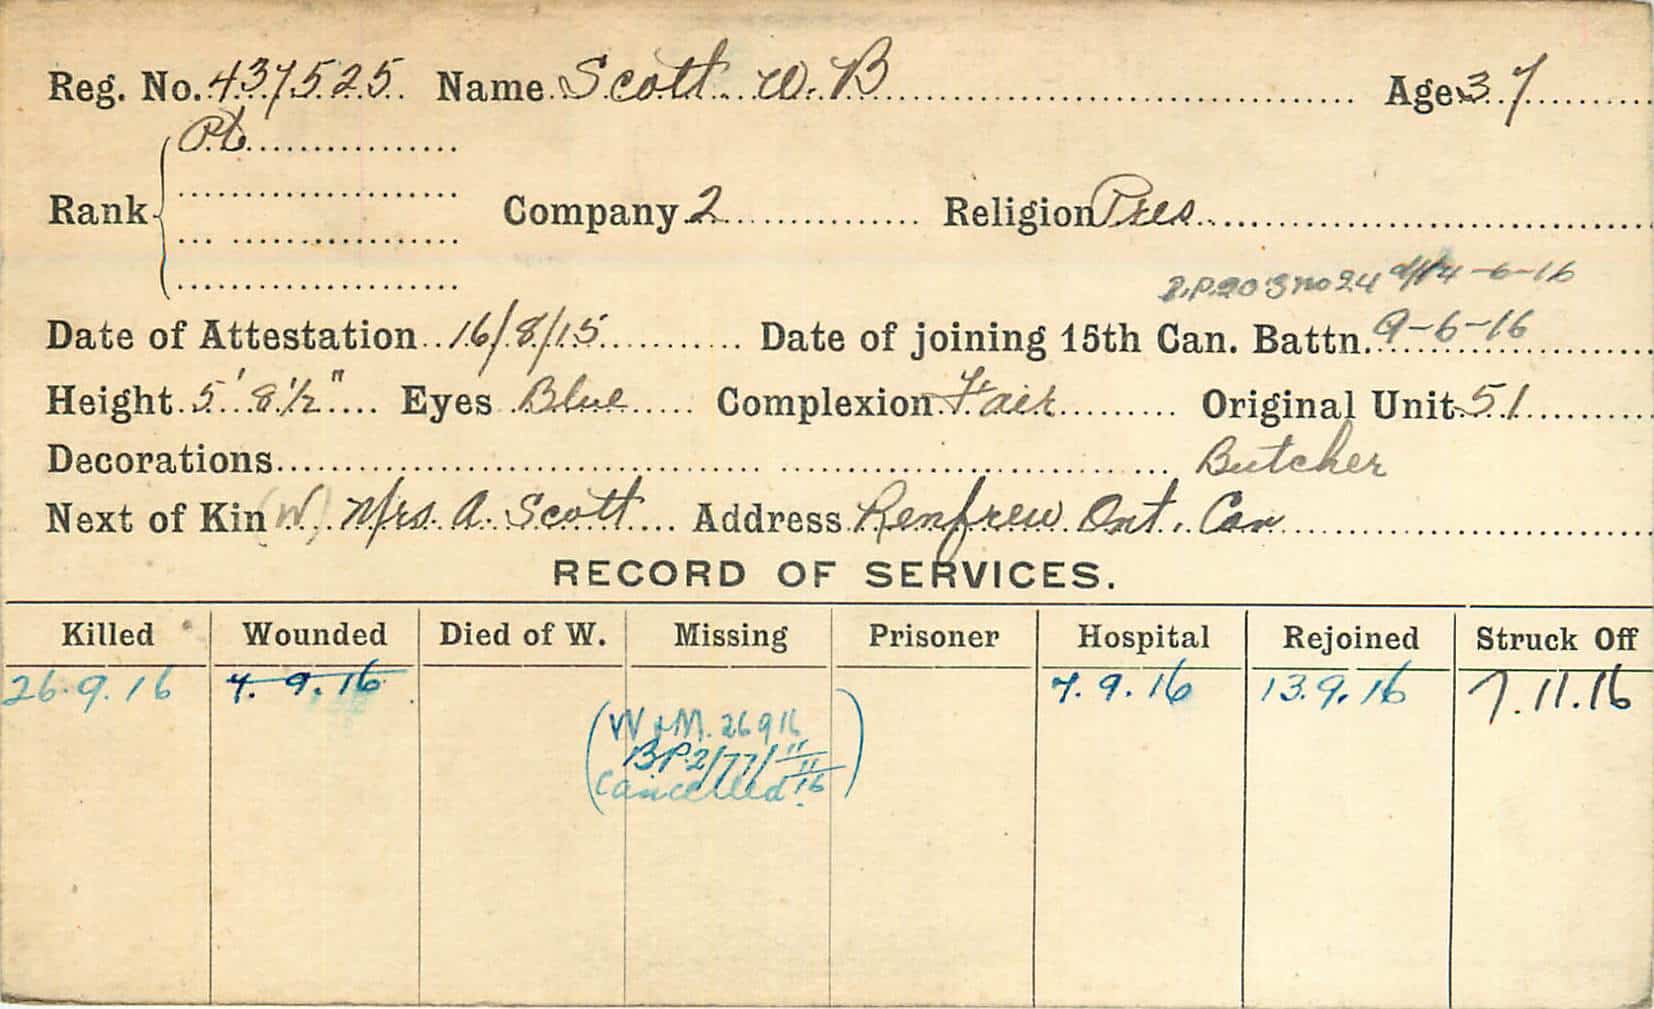 Reg. No. 437525 Name Scott W. B Age 37
Pt
Rank Company 2 Religion Pres
24 4-6-16
Date of Attestation 16/8/15 Date of joining 15th Can. Battn. 9-6-16
Height 5' 8½" Eyes Blue Complexion Fair Original Unit 51
Decorations Butcher
Next of Kin (W) Mrs. A. Scott Address Renfrew Ont. Can
RECORD OF SERVICES.
Killed Wounded Died of W. Missing Prisoner Hospital Rejoined Struck Off
26.9.16 7.9.16 7.9.16 13.9.16 7.11.16
(W & M. 26 9 16
B.P.2/77/11/11/16
Cancelled)